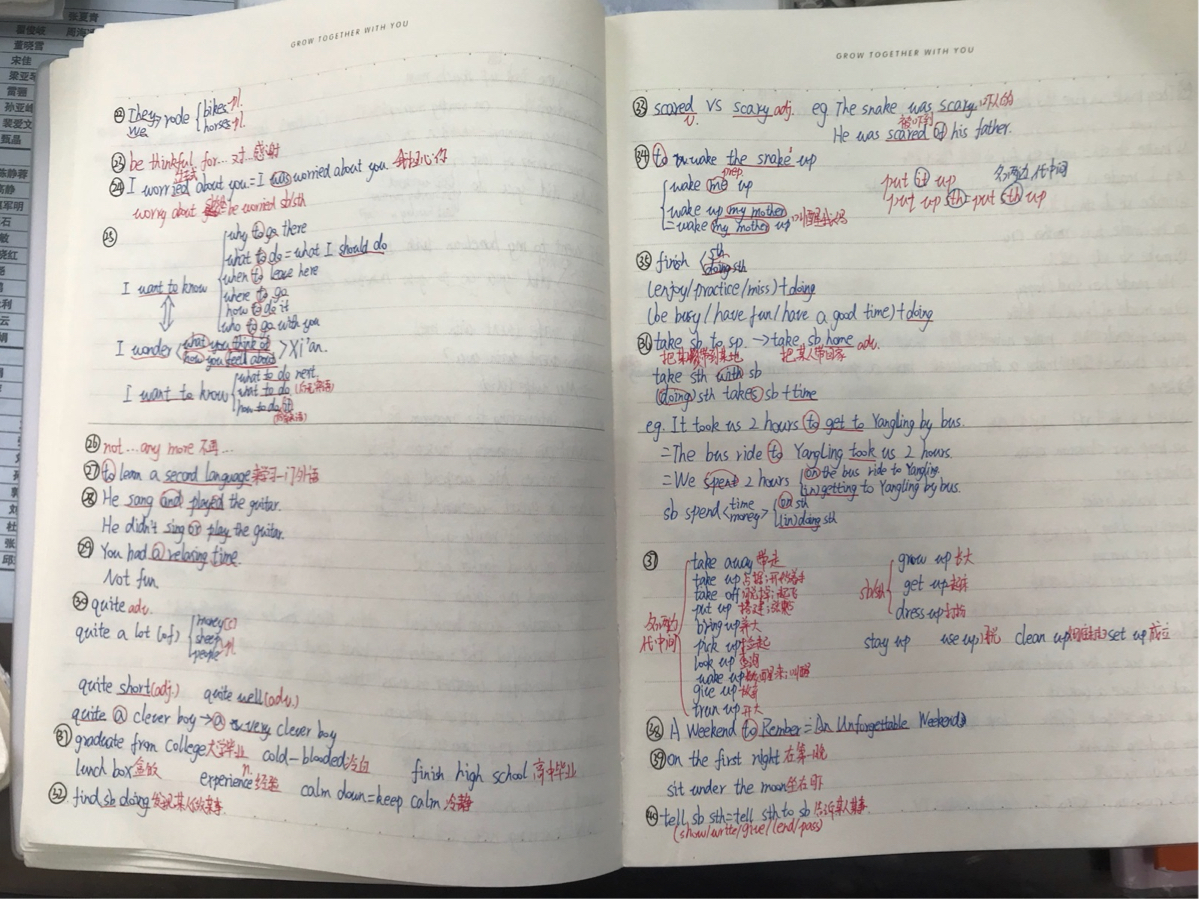 张夏青
翟俊岐
周海
董晓雪
宋佳
梁亚琴
雷骊
孙亚峰
裴爱文
甄品
陈静蓉
高静
军明
石
敏
晓红
利
云
娟
杜
张
邱
GROW TOGETHER WITH YOU
㉒ They rode bikes pl.
We horses pl.
㉓ be thinkful for... 对...感谢
㉔ I worried about you = I was worried about you. 我担心你
worry about be worried sb/sth
㉕
why to go there
what to do = what I should do
I want to know when to leave here
where to go
how to do it
who to go with you
I wonder what you think of Xi'an.
how you feel about
I want to know what to do next.
what to do
how to do it
㉖ not...any more 不再...
㉗ to learn a second language 学习一门外语
㉘ He sang and played the guitar.
He didn't sing or play the guitar.
㉙ You had a relaxing time.
Not fun.
㉚ quite adv.
quite a lot (of) money
sheep
people pl.
quite short(adj.) quite well(adv.)
quite a clever boy → a very clever boy
㉛ graduate from college 大学毕业 cold-blooded 冷血 finish high school 高中毕业
lunch box 盒饭 experience n 经验 calm down = keep calm 冷静
㉜ find sb doing 发现某人做某事.
GROW TOGETHER WITH YOU
㉝ scared VS scary adj. eg The snake was scary. 吓人的
v. 被吓到
He was scared of his father.
㉞ to wake the snake up
prep.
wake me up put it up 名两边代中间
wake up my mother put up sth = put sth up
= wake my mother up 叫醒我妈
㉟ finish sth
doing sth
(enjoy/practice/miss)+doing
(be busy/have fun/have a good time)+doing
㊱ take sb to sp. → take sb home adv.
把某人带到某地 把某人带回家
take sth with sb
(doing) sth takes sb + time
eg. It took us 2 hours to get to Yangling by bus.
= The bus ride to Yangling took us 2 hours.
= We spent 2 hours on the bus ride to Yangling.
(in) getting to Yangling by bus.
sb spend time on sth
money (in) doing sth
㊲ take away 带走 grow up 长大
take up 占据;开始着手 get up 起床
take off 脱掉;起飞 dress up 打扮
put up 搭建;张贴
名两边 bring up 养大
代中间 pick up 捡起 stay up use up clean up set up 成立
look up 查询
wake up 醒来;叫醒
give up 放弃
turn up 开大
㊳ A Weekend to Rember = An Unforgettable Weekend
㊴ on the first night 在第一晚
sit under the moon 坐在月下
㊵ tell sb sth = tell sth to sb 告诉某人某事
(show/write/give/lend/pass)